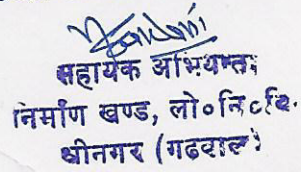 सहायक अभियन्ता
निर्माण खण्ड, लो०नि०वि.
श्रीनगर (गढवाल)